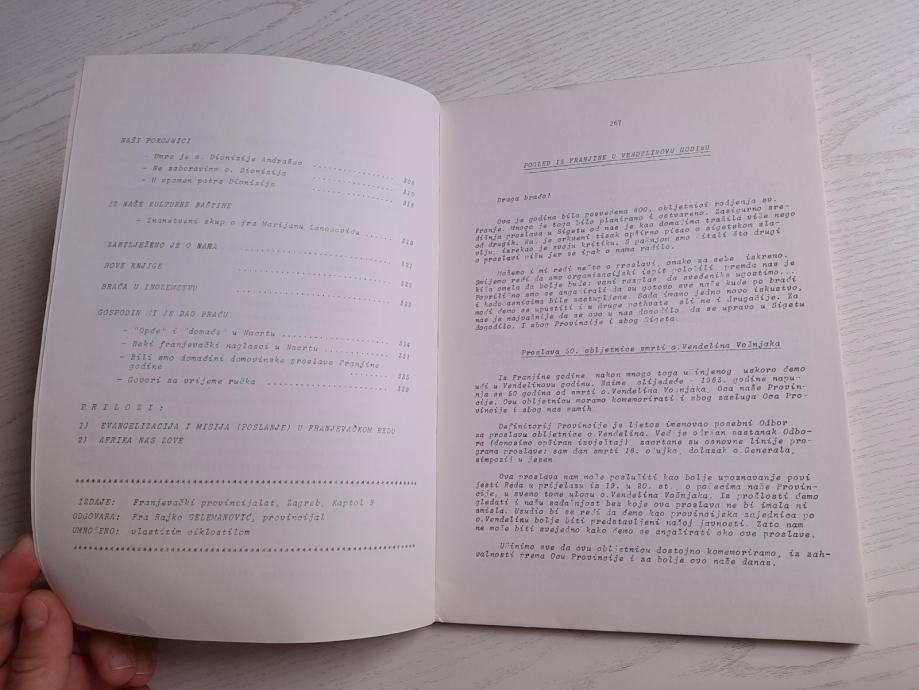 NAŠI POKOJNICI
- Umro je o. Dionizije Andrašec ..............
- Ne zaboravimo o. Dionizija ..............
- U spomen patra Dionizija ..............
IZ NAŠE KULTURNE BAŠTINE
- Znanstveni skup o fra Marijanu Lanosoviću ......
ZABILJEŽENO JE O NAMA ..............
NOVE KNJIGE ..............
BRAĆA U INOZEMSTVU ..............
GOSPODIN MI JE DAO BRAĆU
- "Opće" i "domaće" u Nacrtu ..............
- Neki franjevački naglasci u Nacrtu ..............
- Bili smo domaćini domovinske proslave Franjine
godine ..............
- Govori za vrijeme ručka ..............
P R I L O Z I :
1) EVANGELIZACIJA I MISIJA (POSLANJE) U FRANJEVAČKOM REDU
2) AFRIKA NAS ZOVE
IZDAJE: Franjevački provincijalat, Zagreb, Kaptol 9
ODGOVARA: Fra Rajko GELEMANOVIĆ, provincijal
UMNOŽENO: vlastitim ciklostilom
267
POGLED IZ FRANJINE U VENDELINOVU GODINU
Draga braćo!
Ova je godina bila posvećena 800. obljetnici rodjenja sv.
Franje. Mnogo je toga bilo planirano i ostvareno. Zasigurno sre-
dišnja proslava u Sigetu od nas je kao domaćina tražila više nego
od drugih. Naš je crkveni tisak opširno pisao o sigetskom sla-
vlju, izrekao je svoju kritiku. S pažnjom smo čitali što drugi
o proslavi pišu jer se ipak o nama radilo.
Možemo i mi reći nešto o proslavi, onako za sebe iskreno.
Smijemo reći da smo organizacijski ispit položili, premda nas je
kiša omela da bolje bude: vani razglas, da svečenike ugostimo...
Poprilično smo se angažirali da su gotovo sve naše kuće po braći
i hodočasnicima bile zastupljene. Sada imamo jedno novo iskustvo,
moći ćemo se upustiti i u druge pothvate slične i drugačije. Za
nas je najvažnije da se ovo u nas dogodilo, da se upravo u Sigetu
dogodilo. I zbog Provincije i zbog Sigeta.
Proslava 50. obljetnice smrti o.Vendelina Vošnjaka
Iz Franjine godine, nakon mnogo toga učinjenog uskoro ćemo
ući u Vendelinovu godinu. Naime slijedeće - 1983. godine napu-
nja se 50 godina od smrti o.Vendelina Vošnjaka, Oca naše Provin-
cije. Ovu obljetnicu moramo komemorirati i zbog zasluga Oca Pro-
vincije i zbog nas samih.
Definitorij Provincije je ljetos imenovao posebni Odbor
za proslavu obljetnice o.Vendelina. Već je održan sastanak Odbo-
ra (donosimo opširan izvještaj), zacrtane su osnovne linije pro-
grama proslave: sam dan smrti 18. ožujka, dolazak o.Generala,
simpozij u jesen.
Ova proslava nam može poslužiti kao bolje upoznavanje povi
jesti Reda u prijelazu iz 19. u 20. st., o počecima naše Provin-
cije, u svemu tome ulogu o.Vendelina Vošnjaka. Iz prošlosti ćemo
gledati i našu sadašnjost bez koje ova proslava ne bi imala ni
smisla. Usudio bi se reći da ćemo kao provincijska zajednica po
o.Vendelinu bolje biti predstavljeni našoj javnosti. Zato nam
ne može biti svejedno kako ćemo se angažirati oko ove proslave.
Učinimo sve da ovu obljetnicu dostojno komemoriramo, iz zah-
valnosti prema Ocu Provincije i za bolje ovo naše danas.